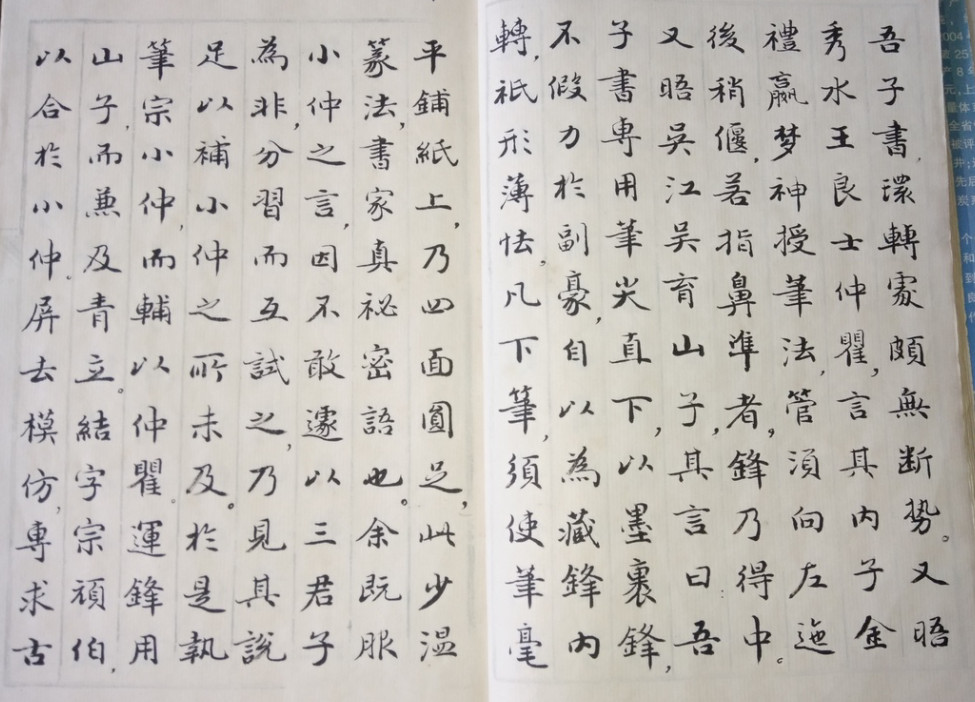 吾子書,環轉處頗無断势。又晤
秀水王良士仲瞿,言其内子金
禮嬴梦神授筆法,管須向左迤
後稍偃,若指鼻準者,鋒乃得中。
又晤吳江吴育山子,其言曰:吾
子書專用筆尖直下,以墨裹鋒,
不假力於副豪,自以為藏鋒内
轉,祇形薄怯,凡下筆,須使筆毫
平鋪紙上,乃四面圓足,此少温
篆法,書家真祕密語也。余既服
小仲之言,因不敢遽以三君子
為非,分習而互試之,乃見其說
足以補小仲之所未及。於是執
筆宗小仲,而輔以仲瞿。運鋒用
山子,而兼及青立。結字宗頑伯,
以合於小仲。屏去模仿,專求古
2004
25
元,上
量体
全省
被评
先后